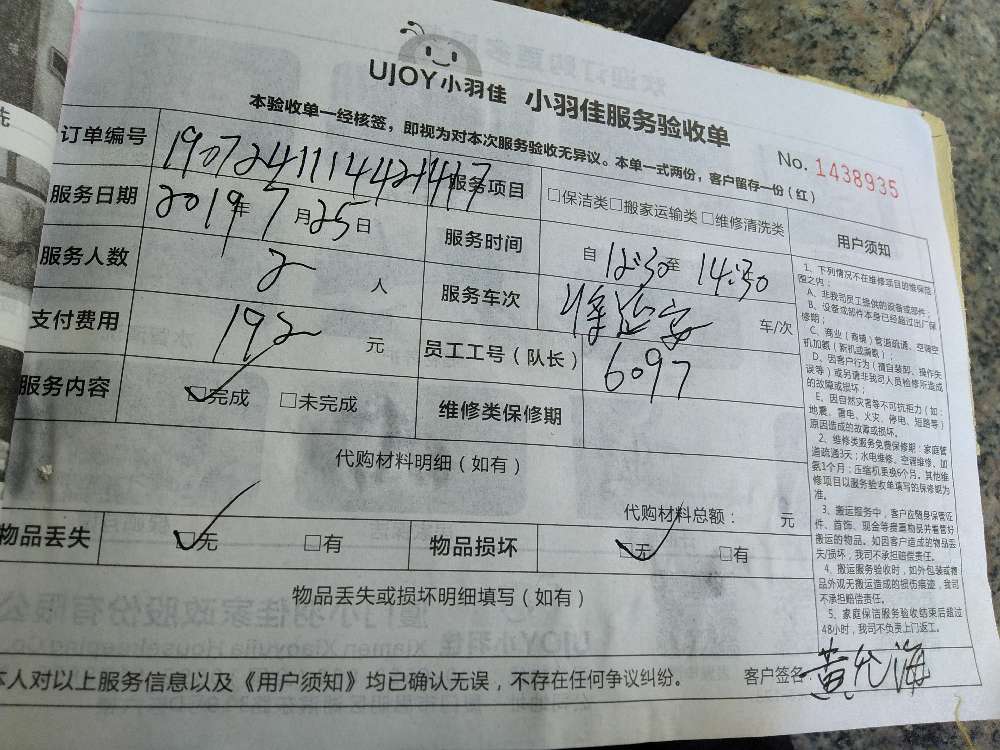 UJOY小羽佳 小羽佳服务验收单
本验收单一经核签，即视为对本次服务验收无异议。本单一式两份，客户留存一份（红）
No. 1438935
订单编号 19072411144421417 服务项目 □保洁类□搬家运输类□维修清洗类
服务日期 2019年7月25日 服务时间 自12:30至14:30
服务人数 2人 服务车次 车/次
支付费用 192元 员工工号（队长） 6097
服务内容 □完成 □未完成 维修类保修期
代购材料明细（如有）
代购材料总额： 元
物品丢失 □无 □有 物品损坏 □无 □有
物品丢失或损坏明细填写（如有）
本人对以上服务信息以及《用户须知》均已确认无误，不存在任何争议纠纷。 客户签名 黄允海
用户须知
1、下列情况不在维修项目的维保范
围之内；
A、非我司员工提供的设备或部件；
B、设备或部件本身已经超过出厂保
修期；
C、商业（商铺）管道疏通、空调空
机加氨（新机或滴氨）；
D、因客户行为（擅自装卸、操作失
误等）或另请非我司人员检修所造成
的故障或损坏；
E、因自然灾害等不可抗拒力（如：
地震、雷电、火灾、停电、短路等）
原因造成的故障或损坏。
2、维修类服务免费保修期：家庭管
道疏通3天；水电维修、空调维修、加
氨1个月；压缩机更换6个月。其他维
修项目以服务验收单填写的保修期为
准。
3、搬运服务中，客户应随身保管证
件、首饰、现金等贵重物品并看管好
搬运的物品。如因客户造成的物品丢
失/损坏，我司不承担赔偿责任。
4、搬运服务验收时，如外包装或商
品外观无搬运造成的损伤痕迹，我司
不承担赔偿责任。
5、家庭保洁服务验收结束后超过
48小时，我司不负责上门返工。